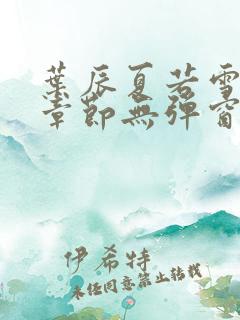 葉辰夏若雪
章節無彈窗
伊希特
未经同意禁止转载